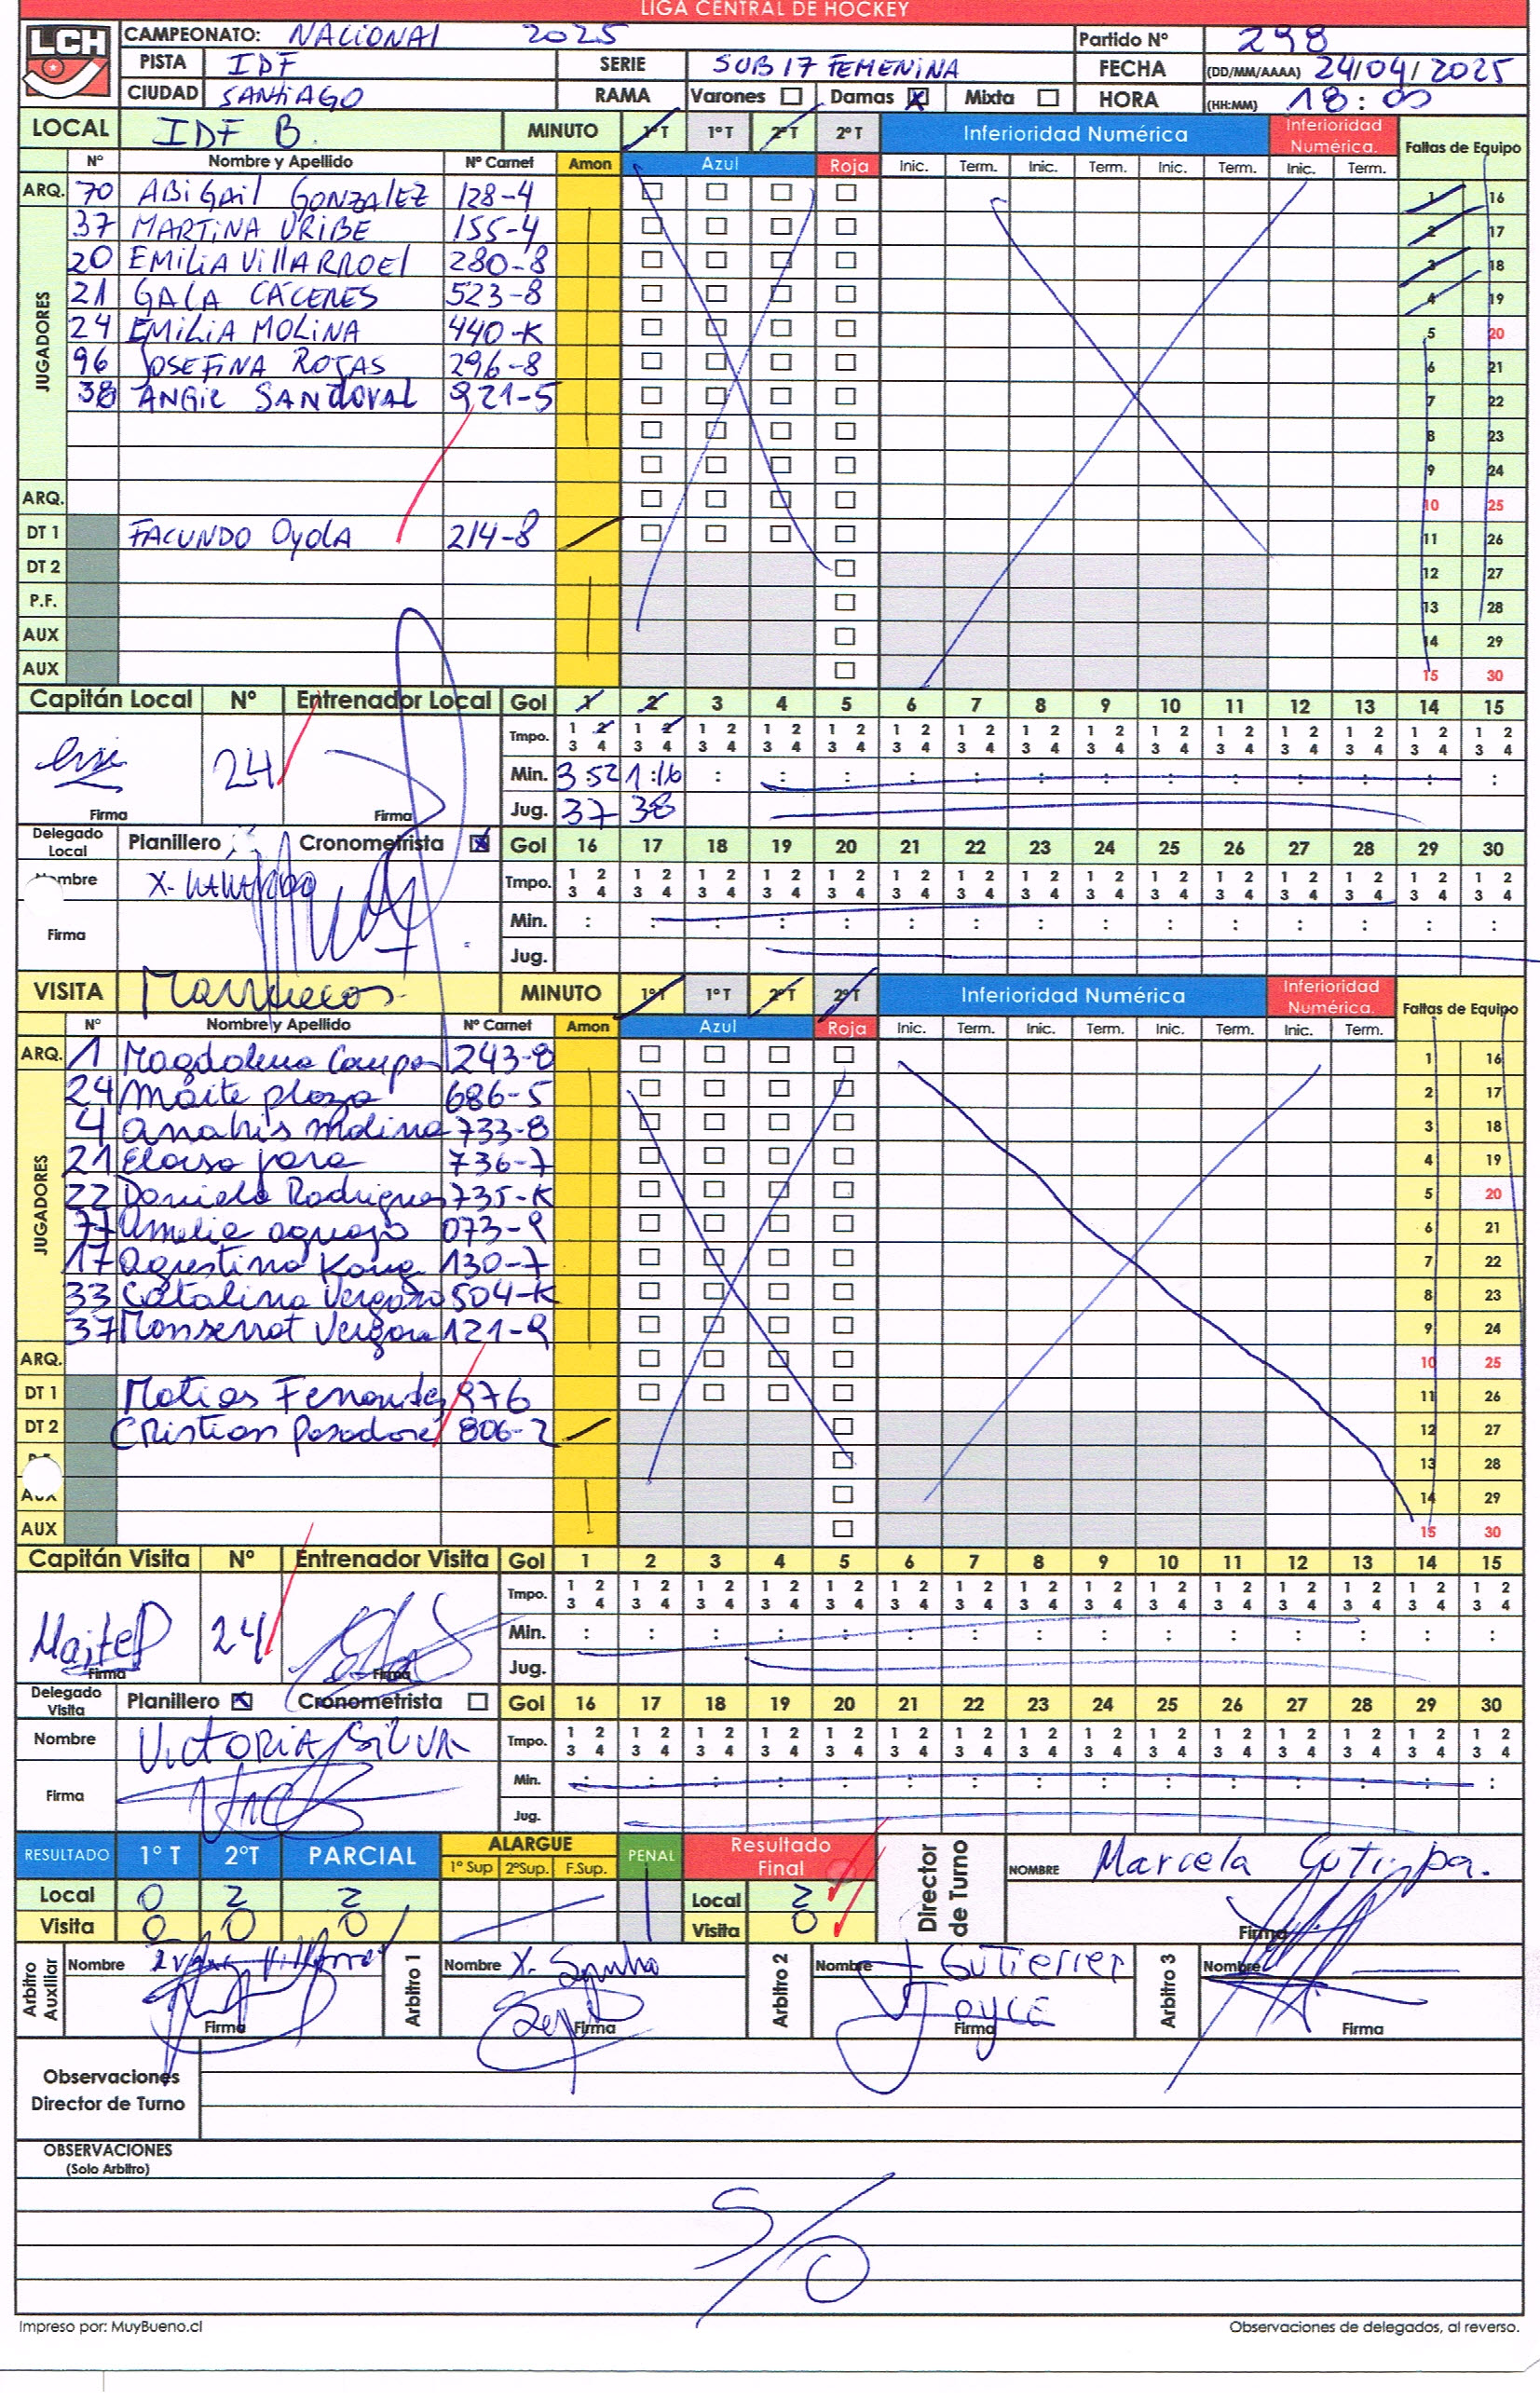 LIGA CENTRAL DE HOCKEY
LCH
CAMPEONATO: NACIONAL 2025 Partido Nº 298
PISTA IDF SERIE SUB 17 FEMENINA FECHA (DD/MM/AAAA) 24/04/2025
CIUDAD SANTIAGO RAMA Varones Damas X Mixta HORA (HH:MM) 18:00
LOCAL IDF B. MINUTO 1º T 1º T 2º T 2º T Inferioridad Numérica Inferioridad Numérica. Faltas de Equipo
Nº Nombre y Apellido Nº Carnet Amon Azul Roja Inic. Term. Inic. Term. Inic. Term. Inic. Term.
ARQ. 70 ABIGAIL GONZALEZ 128-4 1 16
JUGADORES
37 MARTINA URIBE 155-4 2 17
20 EMILIA VILLARROEL 280-8 3 18
21 GALA CÁCERES 523-8 4 19
24 EMILIA MOLINA 440-K 5 20
96 JOSEFINA ROJAS 296-8 6 21
38 ANGIE SANDOVAL 921-5 7 22
8 23
9 24
ARQ. 10 25
DT 1 FACUNDO Oyola 214-8 11 26
DT 2 12 27
P.F. 13 28
AUX 14 29
AUX 15 30
Capitán Local Nº Entrenador Local Gol 1 2 3 4 5 6 7 8 9 10 11 12 13 14 15
Tmpo. 1 2 3 4 1 2 3 4 1 2 3 4 1 2 3 4 1 2 3 4 1 2 3 4 1 2 3 4 1 2 3 4 1 2 3 4 1 2 3 4 1 2 3 4 1 2 3 4 1 2 3 4 1 2 3 4 1 2 3 4
24 Min. 3:52 1:16
Firma Firma Jug. 37 38
Delegado Local Planillero Cronometrista X Gol 16 17 18 19 20 21 22 23 24 25 26 27 28 29 30
Nombre Tmpo. 1 2 3 4 1 2 3 4 1 2 3 4 1 2 3 4 1 2 3 4 1 2 3 4 1 2 3 4 1 2 3 4 1 2 3 4 1 2 3 4 1 2 3 4 1 2 3 4 1 2 3 4 1 2 3 4 1 2 3 4
Firma Min.
Jug.
VISITA Marruecos MINUTO 1º T 1º T 2º T 2º T Inferioridad Numérica Inferioridad Numérica. Faltas de Equipo
Nº Nombre y Apellido Nº Carnet Amon Azul Roja Inic. Term. Inic. Term. Inic. Term. Inic. Term.
ARQ. 1 Magdalena Campos 243-8 1 16
JUGADORES
24 Maite plaza 686-5 2 17
4 Anahis Molina 733-8 3 18
21 Eloisa jara 736-7 4 19
22 Daniela Rodrigues 735-K 5 20
77 Amelia aguayo 073-9 6 21
17 Agustina 130-7 7 22
33 Catalina Vergara 504-K 8 23
37 Monserrat Vergara 121-9 9 24
ARQ. 10 25
DT 1 Matias Fernandez 976 11 26
DT 2 Cristian 806-2 12 27
P.F. 13 28
AUX 14 29
AUX 15 30
Capitán Visita Nº Entrenador Visita Gol 1 2 3 4 5 6 7 8 9 10 11 12 13 14 15
Tmpo. 1 2 3 4 1 2 3 4 1 2 3 4 1 2 3 4 1 2 3 4 1 2 3 4 1 2 3 4 1 2 3 4 1 2 3 4 1 2 3 4 1 2 3 4 1 2 3 4 1 2 3 4 1 2 3 4 1 2 3 4
MaiteP 24 Min.
Firma Firma Jug.
Delegado Visita Planillero X Cronometrista Gol 16 17 18 19 20 21 22 23 24 25 26 27 28 29 30
Nombre VICTORIA SILVA Tmpo. 1 2 3 4 1 2 3 4 1 2 3 4 1 2 3 4 1 2 3 4 1 2 3 4 1 2 3 4 1 2 3 4 1 2 3 4 1 2 3 4 1 2 3 4 1 2 3 4 1 2 3 4 1 2 3 4 1 2 3 4
Firma Min.
Jug.
RESULTADO 1º T 2ºT PARCIAL ALARGUE 1º Sup 2ºSup. F.Sup. PENAL Resultado Final Director de Turno NOMBRE Marcela
Local 0 2 2 Local 2
Visita 0 0 0 Visita 0 Firma
Arbitro Auxiliar Nombre Arbitro 1 Nombre X. Arbitro 2 Nombre J GUTIERREZ Arbitro 3 Nombre
Firma Firma JOYCE Firma Firma
Observaciones Director de Turno
OBSERVACIONES
(Solo Arbitro)
S/O
Impreso por: MuyBueno.cl Observaciones de delegados, al reverso.